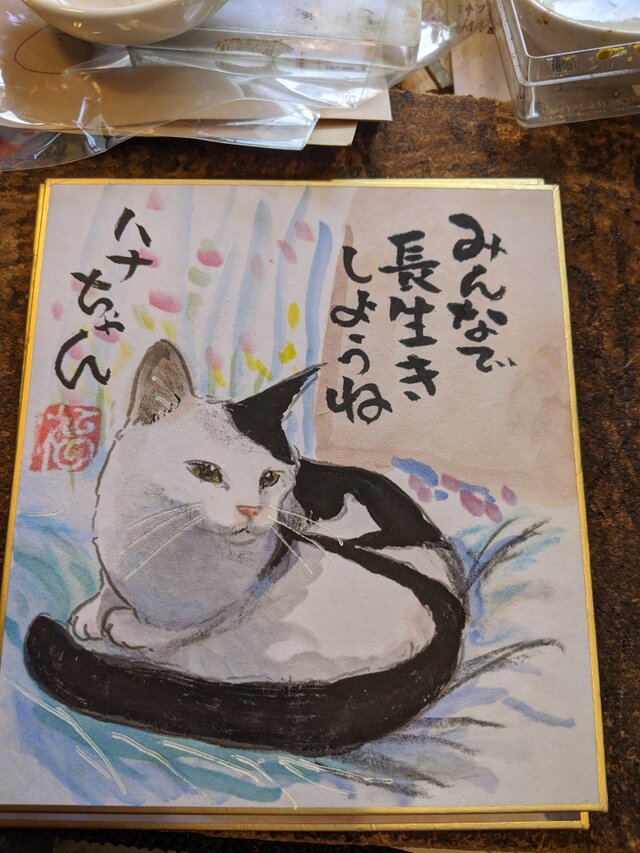 みんなで
長生き
しようね
ハナちゃん